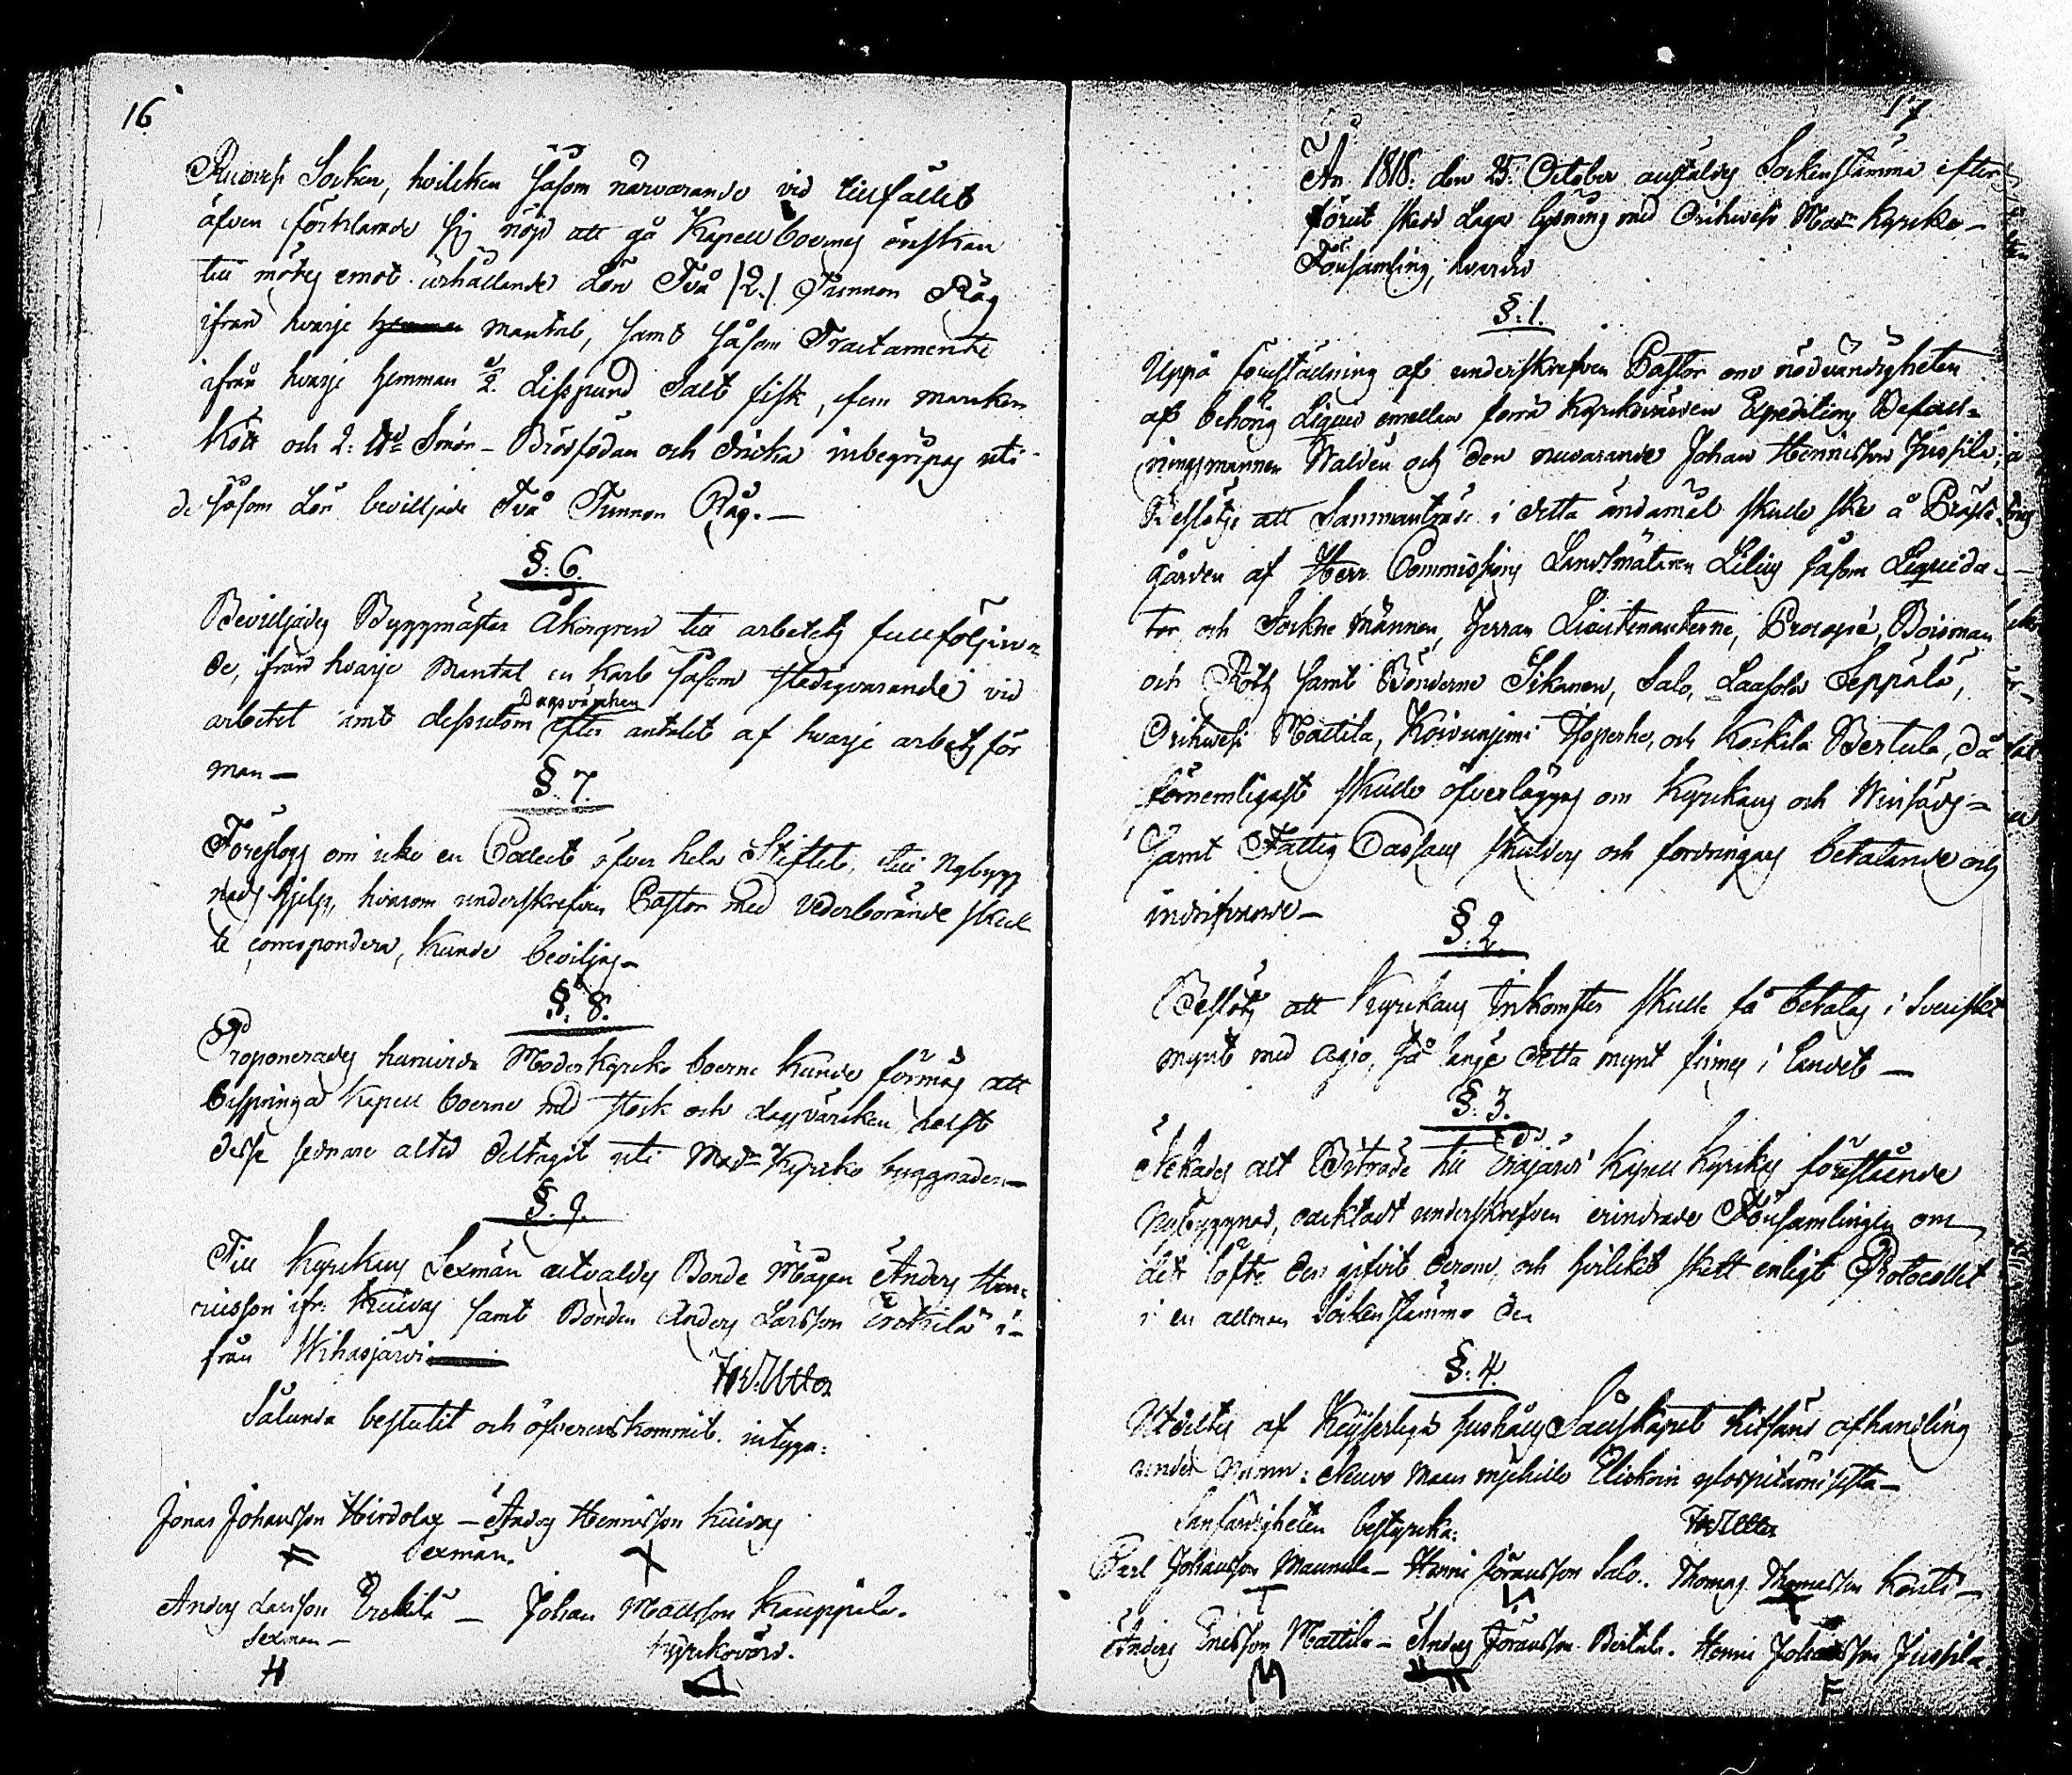 16
Ruovesi Socken, hvilcken såsom närvarande vid tillfället
äfven förklarade sig nögd att gå Kapellboernes önskan
till mötes emot århållande Lön Två /2./ Tunnor Råg
ifrån hvarje mantal, samt såsom Tractamente
ifrån hvarje hemman 1/2 Lisspund Salt fisk, fem marcker
Kött och 2: Smör - Brödfödan och dricka inbegripas uti
de såsom Lön bevilljade Två Tunnor Råg. —
§: 6.
Bevilljades Byggmäster Åkergren till arbetets fullföljan-
de, ifrån hvarje Mantal en karl såsom städigvarande vid
Dagsvärcken
arbetet samt dessutom efter antalet af hvarje arbets för
man —
§ 7.
Föreslogs om icke en Collect öfver hela Stiftet, till Nybygg
nads hjelp, hvarom underskrefven Pastor med Vederbörande skul
le correspondera, kunde beviljas —
§: 8.
Proponerades huruvida Moderkyrko boerne kunde förmås att
bespringa Kapell boerne med stock och dagsvärcken, helst
desse sednare altid deltagit uti Mod:r Kyrko byggnaden —
§. 9.
Till Kyrckans Sexmän utvaldes Bonde Mågen Anders Hen-
ricsson ifr: Kuivas samt Bonden Anders Larsson Erckilä i-
från Wihasjärvi —
Sålunda beslutit och öfverenskommit. intyga:
Jonas Johansson Hirdolax — Anders Henricsson Kuivas
Sexmän.
Anders Larsson Erckilä — Johan Mattsson Kauppila.
Sexman —
Kyrckovärd.
H
17
År 1818: den 25: October anstäldes Sockenstämma efter
förut skedd Laga lysning med Orihvesi Mod:r Kyrcko -
Församling, hvarvid
§: 1.
Uppå föreställning af underskrefven Pastor om nödvändigheten
af behörig Liquid emellan förra Kyrckovärden Expeditions Befall-
ningsmannen Walden och den nuvarande Johan Henricsson Jussila,
Beslöts att Sammanträde i detta ändamål skulle ske å Präste
gården af Herr Commissions Landtmätaren Lilius såsom Liquida-
tor, och Sockne Männen, Herrar Lieutenanterne, Procopé, Boisman
och Roth samt Bönderne Sikanen, Salo, Laasola Seppälä,
Orihvesi Mattila, Koivuniemi och Kockila Bertula, då
förnemligast skulle öfverläggas om Kyrckans och
Samt Fattig Cassans skulders och fordringars betalande och
indrifvande —
§: 2.
Beslöts att Kyrckans Inkomster skulle få betalas i Svenskt
mynt med agio, så länge detta mynt finnes i Landet —
§: 3.
Nekades alt Biträde till Eräjärvi Kapell Kyrckas förestående
Nybyggnad, oacktadt underskrefven erindrade Församlingen om
det löfte den gifvit derom, och hvilcket skett enligt Protocollet
i en allmän Sockenstämma den
§: 4.
Utdeltes af Keijserliga hushålls Sällskapet hitsänd afhandling
under Namn: Neuvo
Sanfärdigheten bestyrcka:
Carl Johansson Maunula — Henric Göransson Salo. Thomas Thomasson Kouti —
Anders Ericsson Mattila — Anders Göransson Bertula. Henric Johansson Jussila.